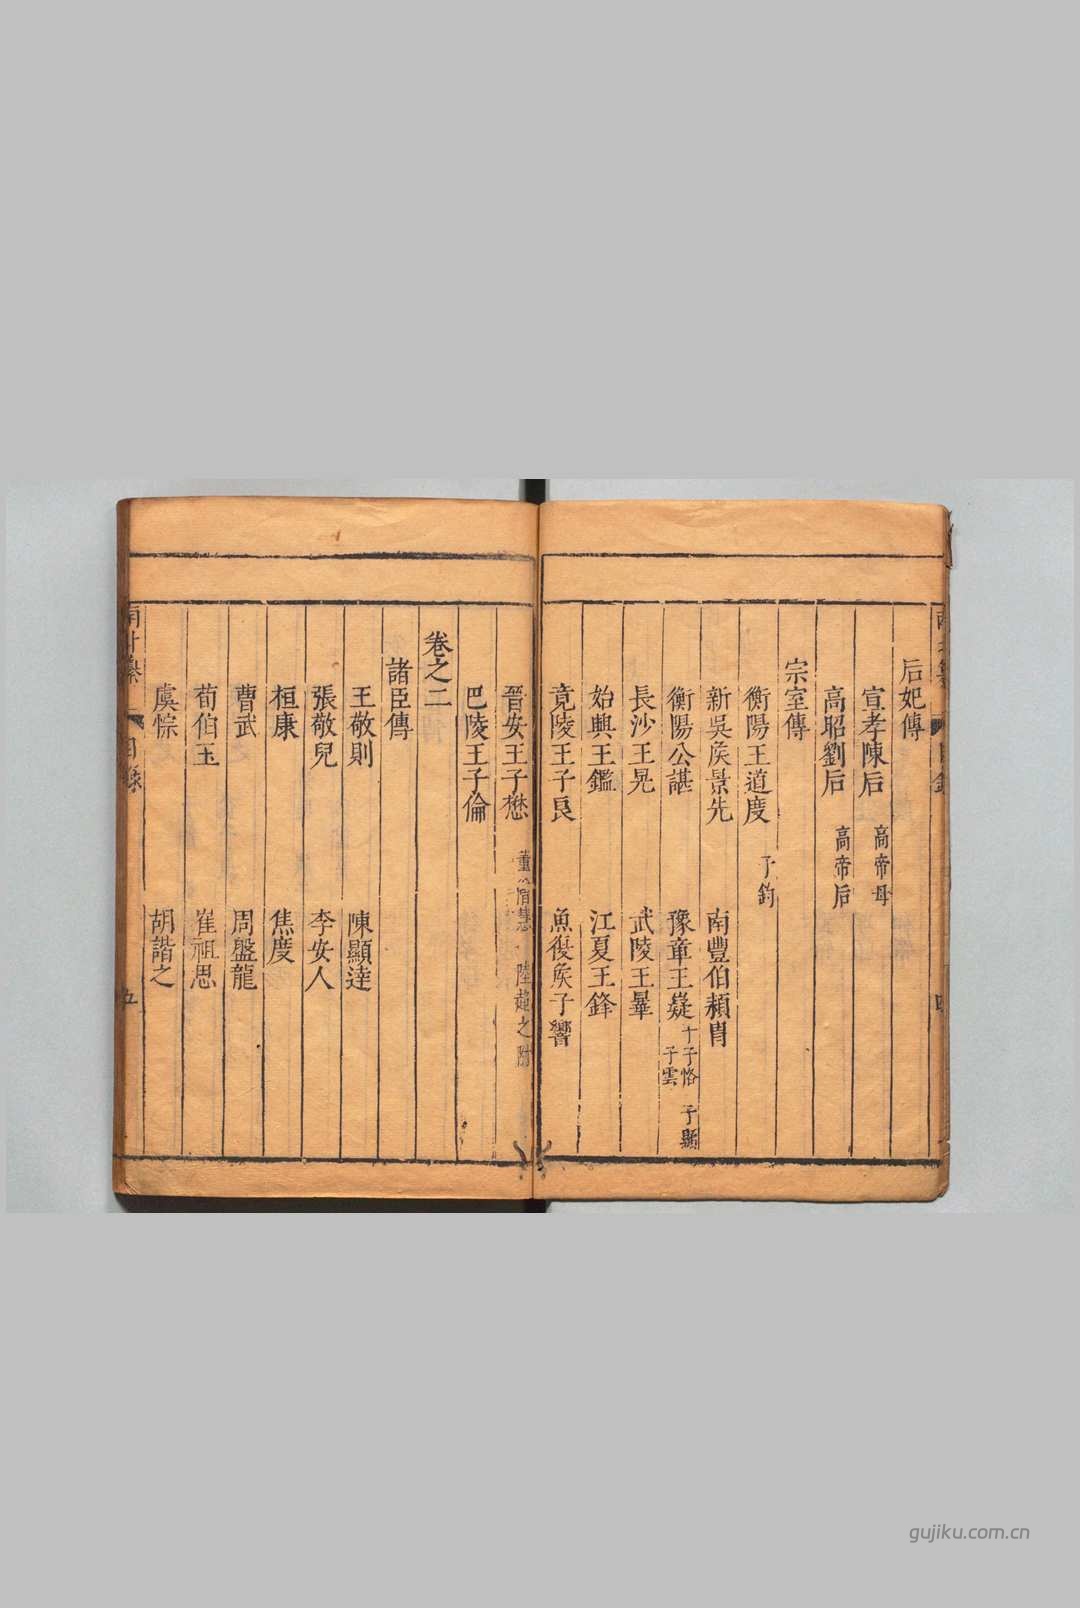 后妃傳
宣孝陳后 高帝母
高昭劉后 高帝后
宗室傳
衡陽王道度 子鈞
新吳矦景先 南豐伯頴胄
衡陽公諶 豫章王嶷 子子恪 子顯 子雲
長沙王晃 武陵王曅
始興王鑑 江夏王鋒
竟陵王子良 魚復矦子響
晉安王子懋 董僧慧 陸超之附
巴陵王子倫
卷之二
諸臣傳
王敬則 陳顯逹
張敬兒 李安人
桓康 焦度
曹武 周盤龍
荀伯玉 崔祖思
虞悰 胡諧之
目錄
五
gujiku.com.cn